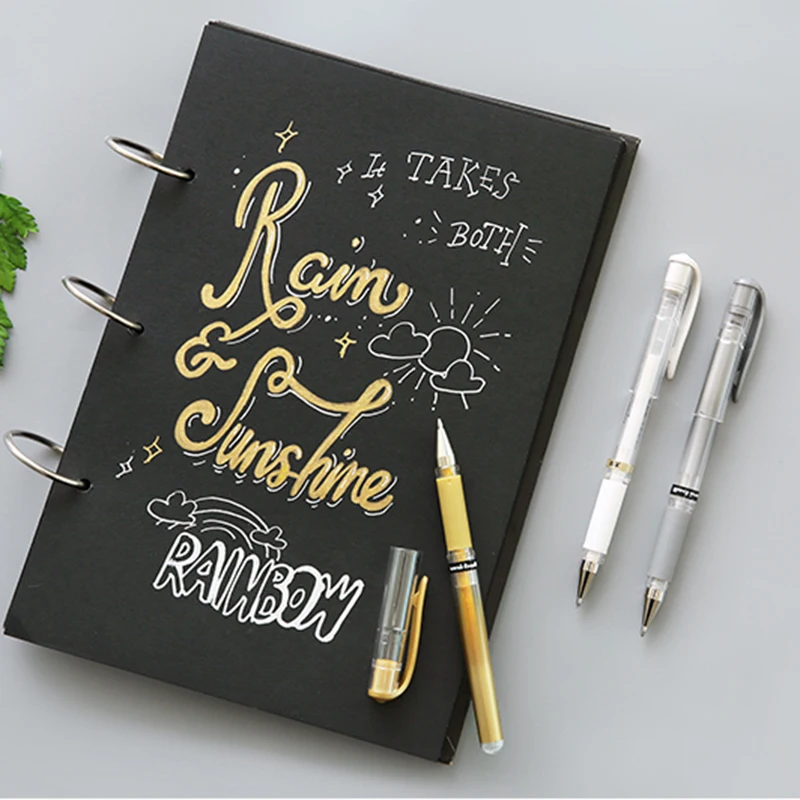 It TAKES
BOTH
Rain
& Sunshine
RAINBOW